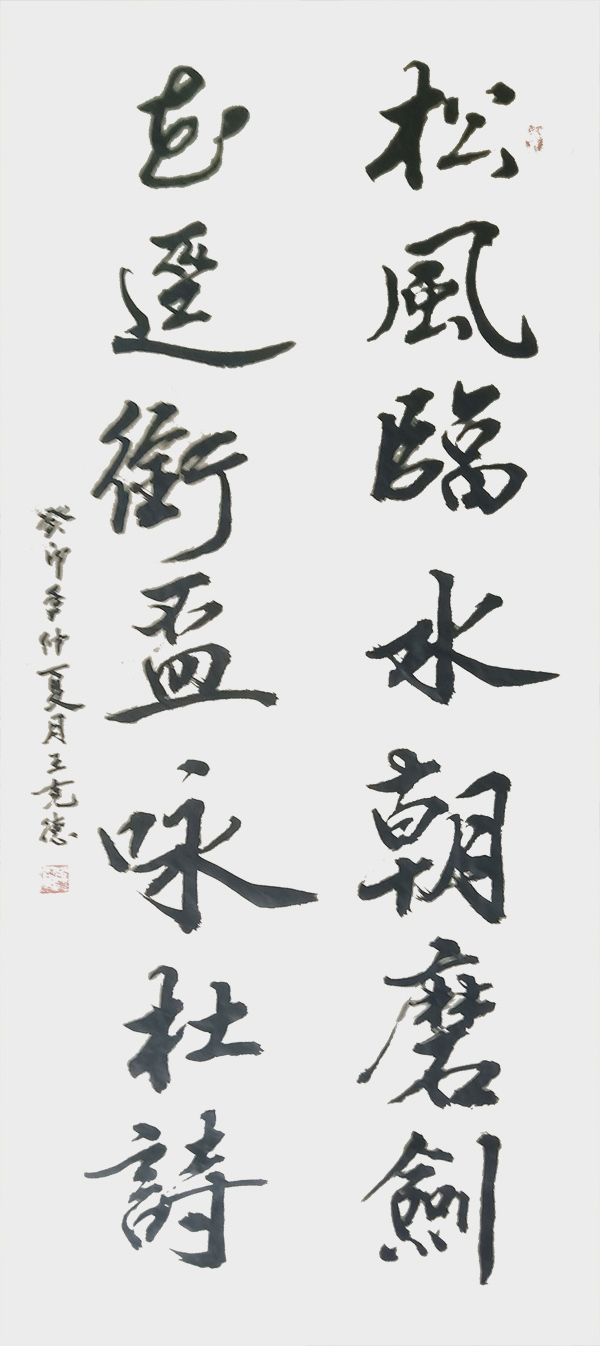 松風臨水朝磨劍
花逕銜盃咏杜詩
癸卯年仲夏月王克德